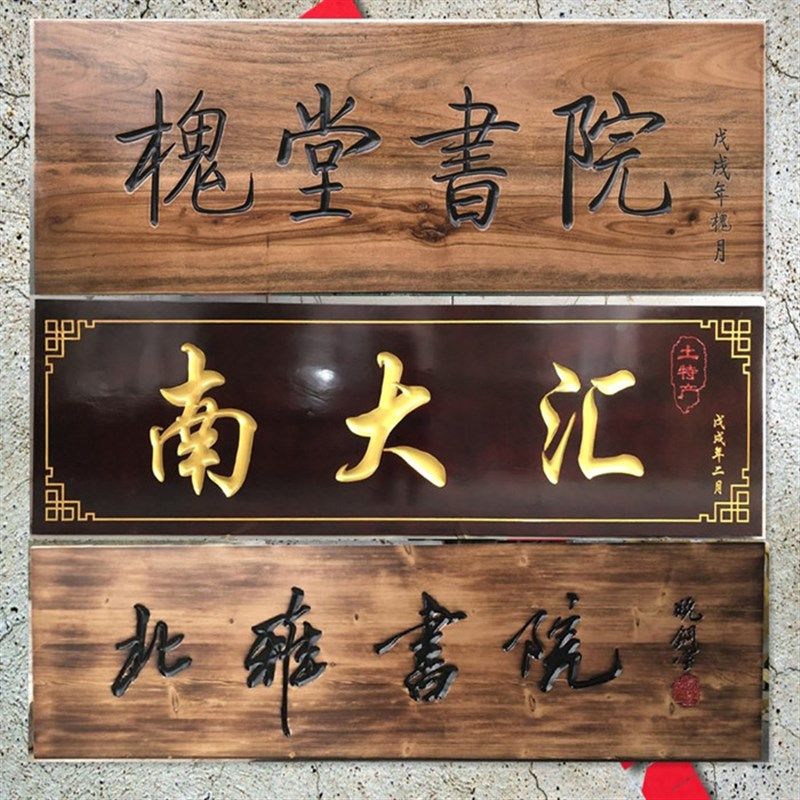 槐堂書院
戊戌年槐月
南大汇
土特产
戊戌年二月
北雅書院